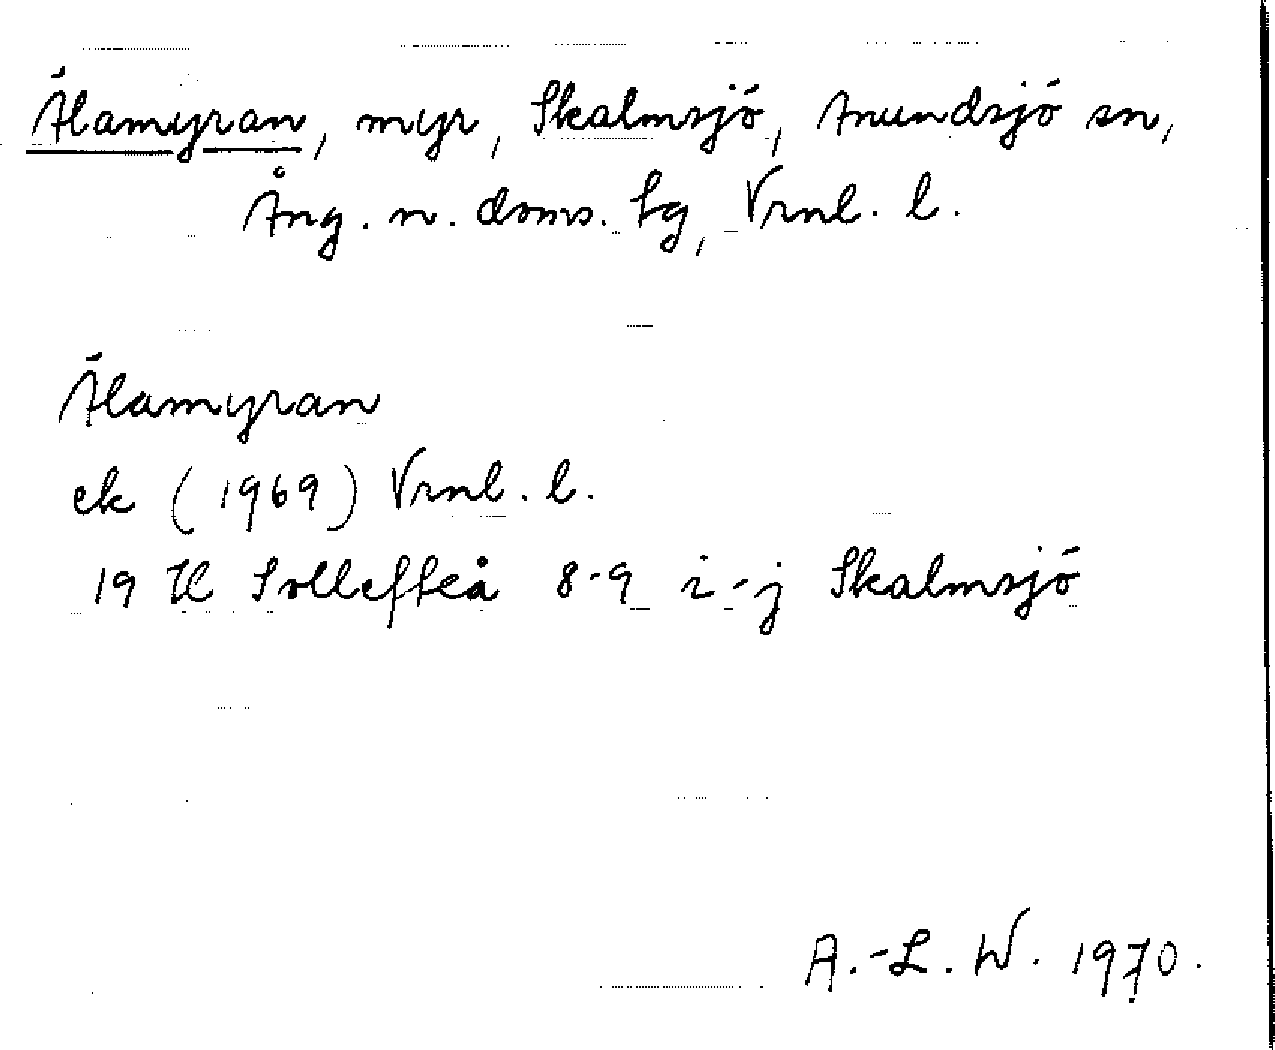 Älamyran, myr, Skalmsjö, Anundsjö sn,
Ång. n. doms. tg, Vrnl. l.
Älamyran
ek (1969) Vrnl. l.
19 H Sollefteå 8-9 i-j Skalmsjö
A.-L. W. 1970.